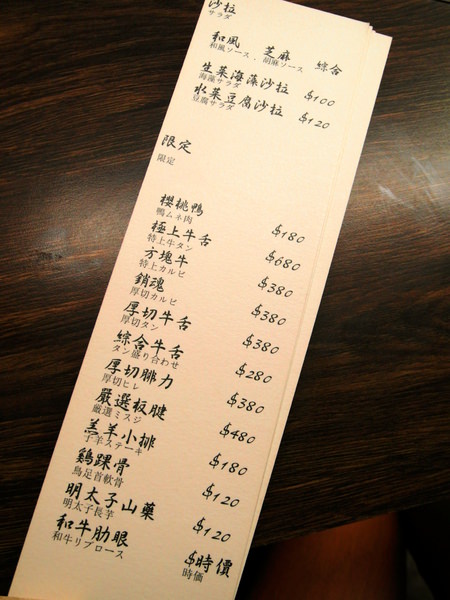 沙拉
サラダ
和風 芝麻 綜合
和風ソース・胡麻ソース
生菜海藻沙拉 $100
海藻サラダ
水菜豆腐沙拉 $120
豆腐サラダ
限定
限定
櫻桃鴨 $180
鴨ムネ肉
極上牛舌 $680
特上牛タン
方塊牛 $380
特上カルビ
銷魂 $380
厚切カルビ
厚切牛舌 $380
厚切タン
綜合牛舌 $280
タン盛り合わせ
厚切腓力 $380
厚切ヒレ
嚴選板腱 $480
厳選ミスジ
羔羊小排 $180
子羊ステーキ
鷄踝骨 $120
鳥足首軟骨
明太子山藥 $120
明太子長芋
和牛肋眼 $時價
和牛リブロース 時価